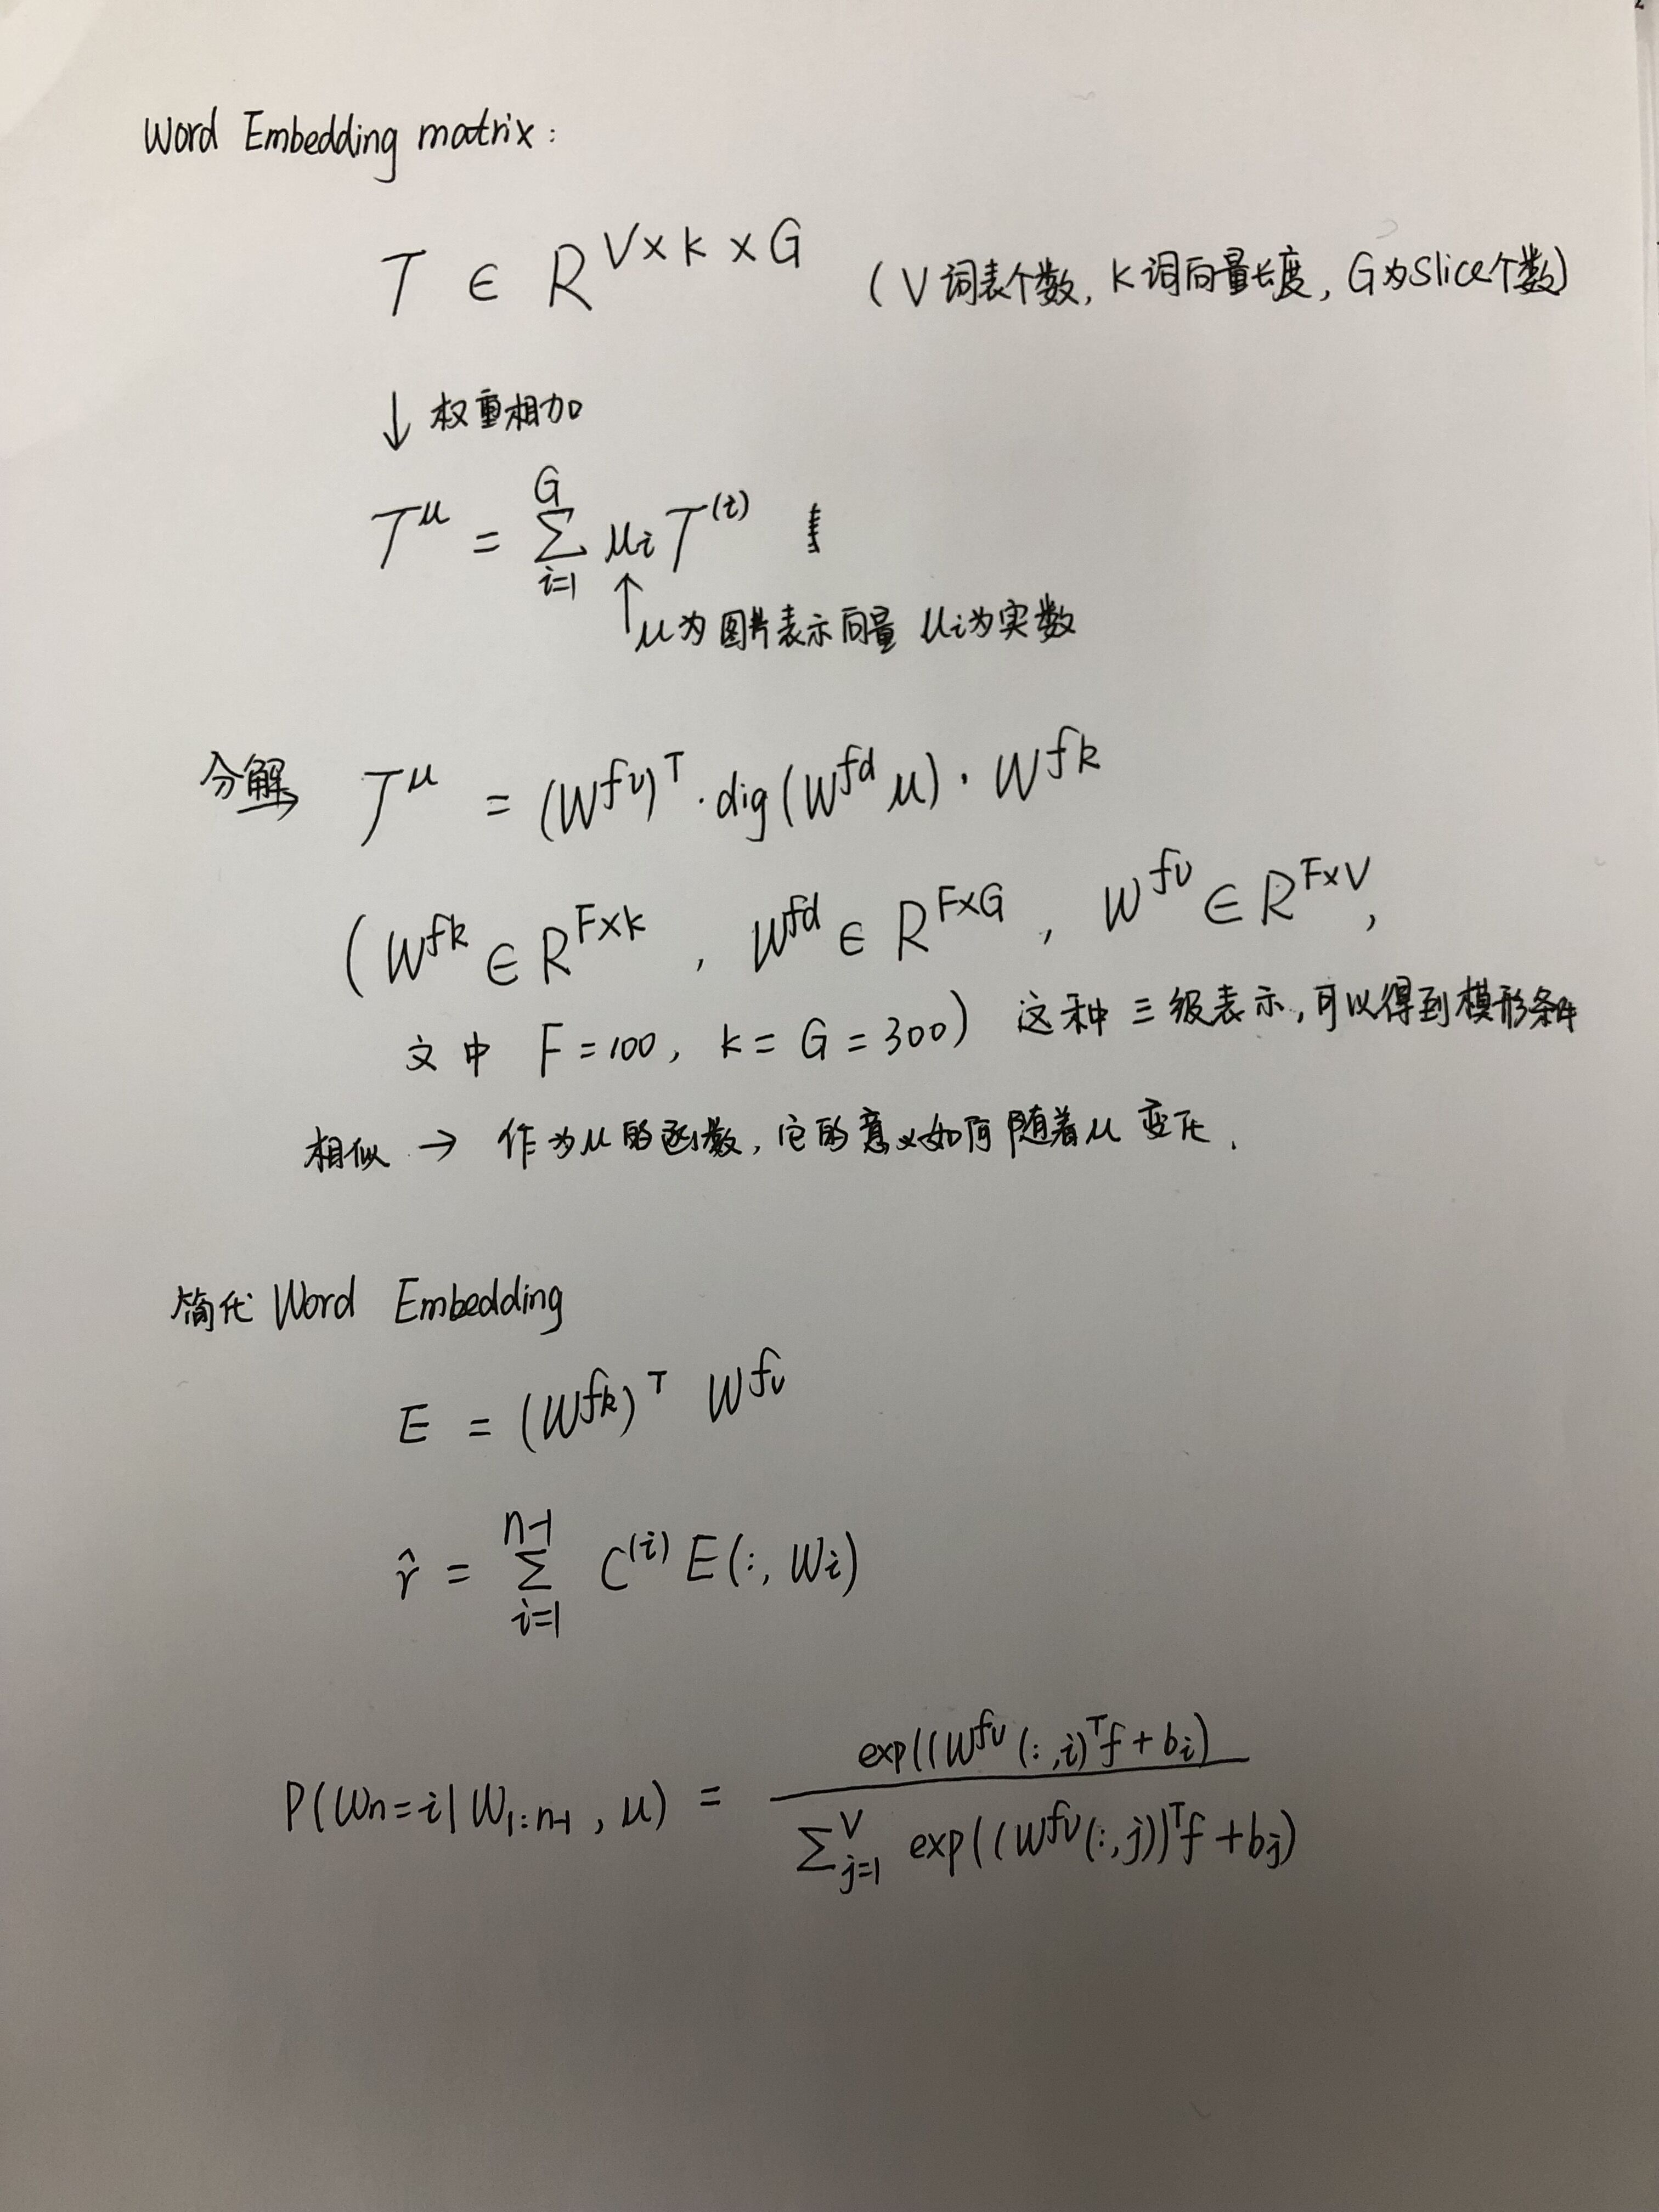 Word Embedding matrix:
T ∈ R^{V×k×G} (V词表个数, K词向量长度, G为slice个数)
↓ 权重相加
T^μ = ∑_{i=1}^{G} μ_i T^{(i)}
↑ μ为图片表示向量 μ_i为实数
分解 T^μ = (W^{fv})^T · dig(W^{fd} μ) · W^{fk}
(W^{fk} ∈ R^{F×k}, W^{fd} ∈ R^{F×G}, W^{fv} ∈ R^{F×V},
文中 F=100, k=G=300) 这种三级表示,可以得到模形条件
相似 → 作为μ的函数,它的意义如何随着μ变化.
简化 Word Embedding
E = (W^{fk})^T W^{fv}
r̂ = ∑_{i=1}^{n-1} C^{(i)} E(:, W_i)
P(W_n=i|W_{1:n-1}, μ) = exp((W^{fv}(:,i)^T f + b_i) / ∑_{j=1}^{V} exp((W^{fv}(:,j))^T f + b_j)